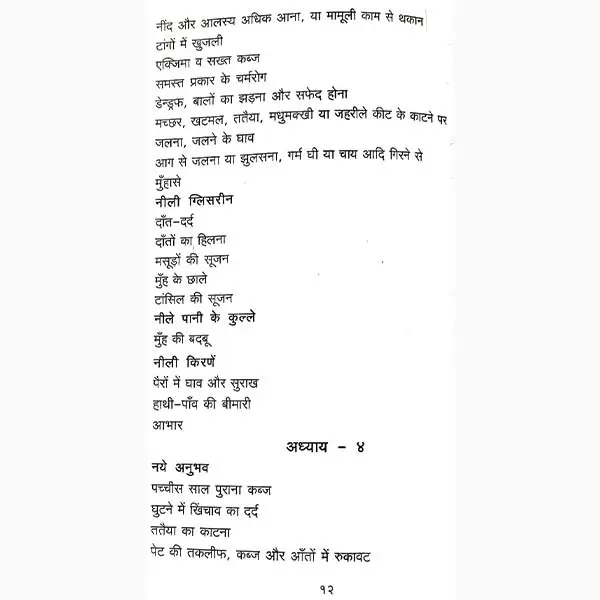 नींद और आलस्य अधिक आना, या मामूली काम से थकान
टांगों में खुजली
एक्जिमा व सख्त कब्ज
समस्त प्रकार के चर्मरोग
डेन्ड्रफ, बालों का झड़ना और सफेद होना
मच्छर, खटमल, ततैया, मधुमक्खी या जहरीले कीट के काटने पर
जलना, जलने के घाव
आग से जलना या झुलसना, गर्म घी या चाय आदि गिरने से
मुँहासे
नीली ग्लिसरीन
दाँत-दर्द
दाँतों का हिलना
मसूड़ों की सूजन
मुँह के छाले
टांसिल की सूजन
नीले पानी के कुल्ले
मुँह की बदबू
नीली किरणें
पैरों में घाव और सुराख
हाथी-पाँव की बीमारी
आभार
अध्याय - ४
नये अनुभव
पच्चीस साल पुराना कब्ज
घुटने में खिंचाव का दर्द
ततैया का काटना
पेट की तकलीफ, कब्ज और आँतों में रुकावट
१२